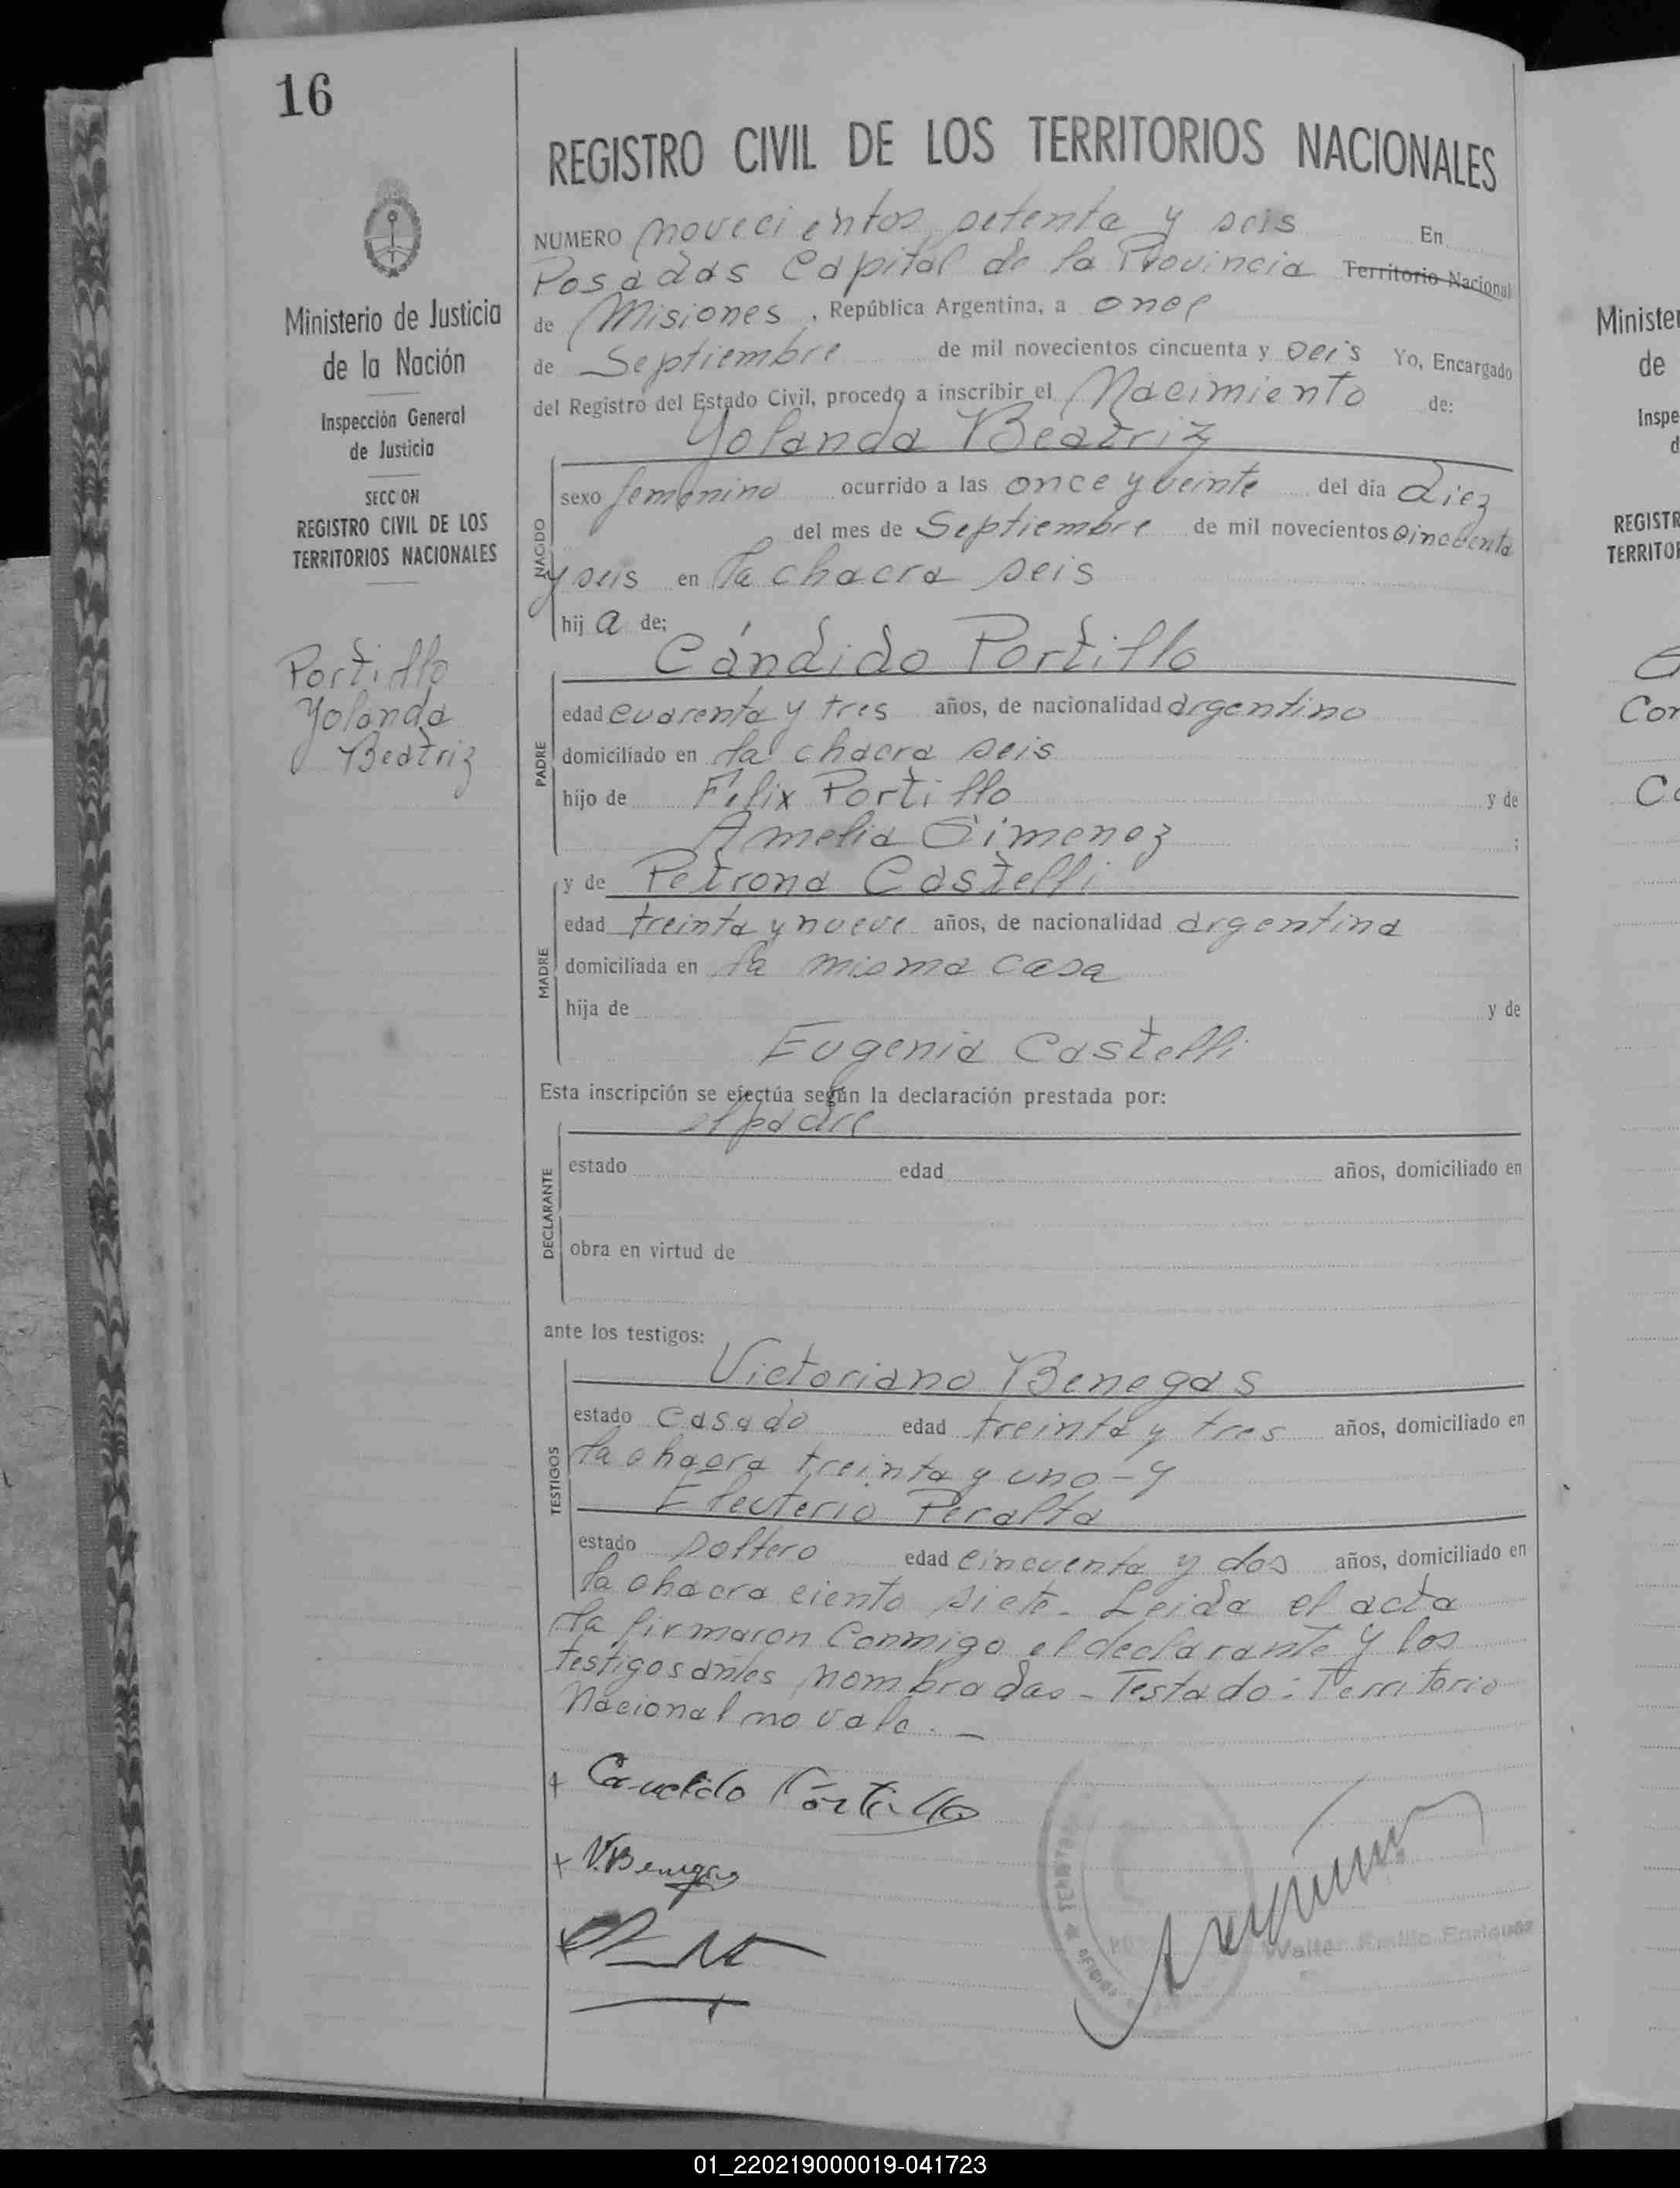 16
REGISTRO CIVIL DE LOS TERRITORIOS NACIONALES
Ministerio de Justicia
de la Nación
Inspección General
de Justicia
SECCION
REGISTRO CIVIL DE LOS
TERRITORIOS NACIONALES
Portillo
Yolanda
Beatriz
NUMERO novecientos setenta y seis En
Posadas Capital de la Provincia Territorio Nacional
de Misiones, República Argentina, a once
de Septiembre de mil novecientos cincuenta y seis Yo, Encargado
del Registro del Estado Civil, procedo a inscribir el Nacimiento de:
Yolanda Beatriz
NACIDO
sexo femenino ocurrido a las once y veinte del día diez
del mes de Septiembre de mil novecientos cincuenta
y seis en la chacra seis
hij a de;
Cándido Portillo
PADRE
edad cuarenta y tres años, de nacionalidad argentino
domiciliado en la chacra seis
hijo de Felix Portillo y de
Amelia Gimenez ;
y de Petrona Castelli
MADRE
edad treinta y nueve años, de nacionalidad argentina
domiciliada en la misma casa
hija de y de
Eugenia Castelli
Esta inscripción se efectúa según la declaración prestada por:
el padre
DECLARANTE
estado edad años, domiciliado en
obra en virtud de
ante los testigos:
Victoriano Benegas
TESTIGOS
estado casado edad treinta y tres años, domiciliado en
la chacra treinta y uno - y
Eleuterio Peralta
estado soltero edad cincuenta y dos años, domiciliado en
la chacra ciento siete. Leida el acta
la firmaron conmigo el declarante y los
testigos antes nombrados - Testado: Territorio
Nacional no vale. -
Candido Portillo
V. Benegas
TERRITOR
Walter Emilio Enriquez
Ministe
de
Inspe
d
REGISTR
TERRITOR
Cor
01_220219000019-041723